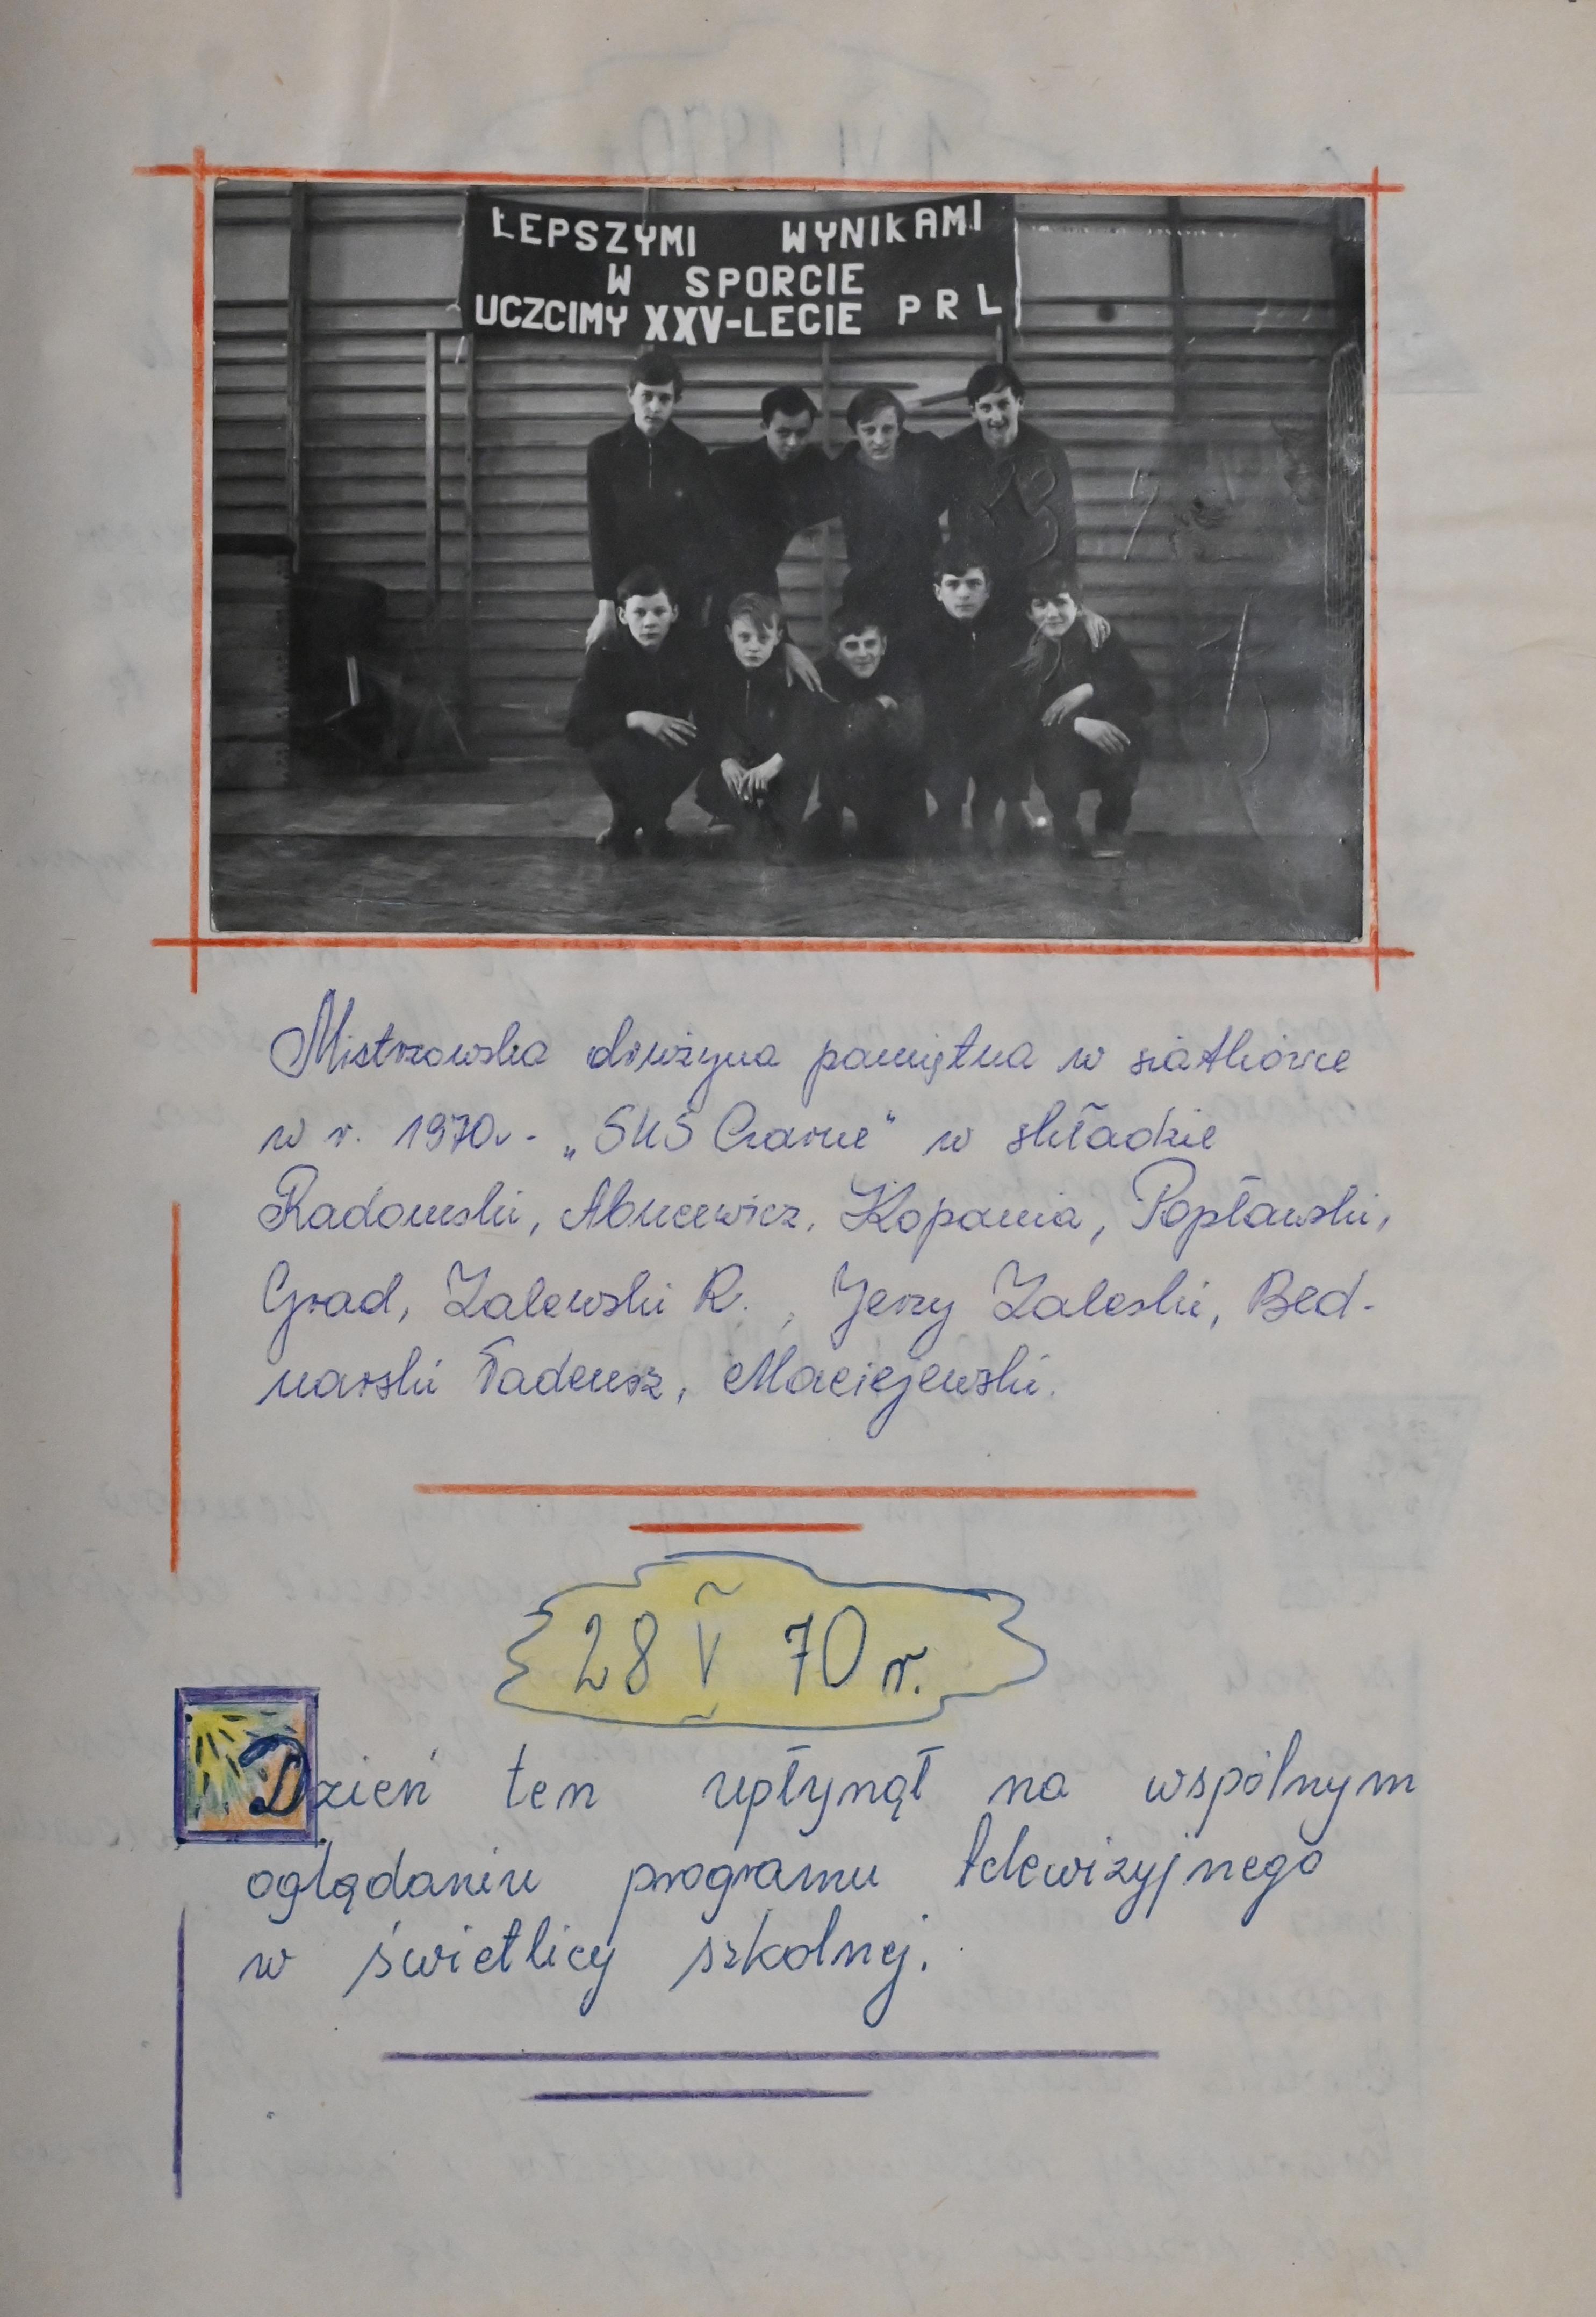 ŁEPSZYMI WYNIKAMI
W SPORCIE
UCZCIMY XXV-LECIE PRL
Mistrzowska drużyna pamiętna w siatkówce
w r. 1970r. - „SKS Czarne" w składzie
Radomski, Kopania, Popławski,
Grad, Zalewski R., Jerzy Zaleski, Bed-
narski Tadeusz, Maciejewski.
28 V 70 r.
Dzień ten upłynął na wspólnym
oglądaniu programu telewizyjnego
w świetlicy szkolnej.